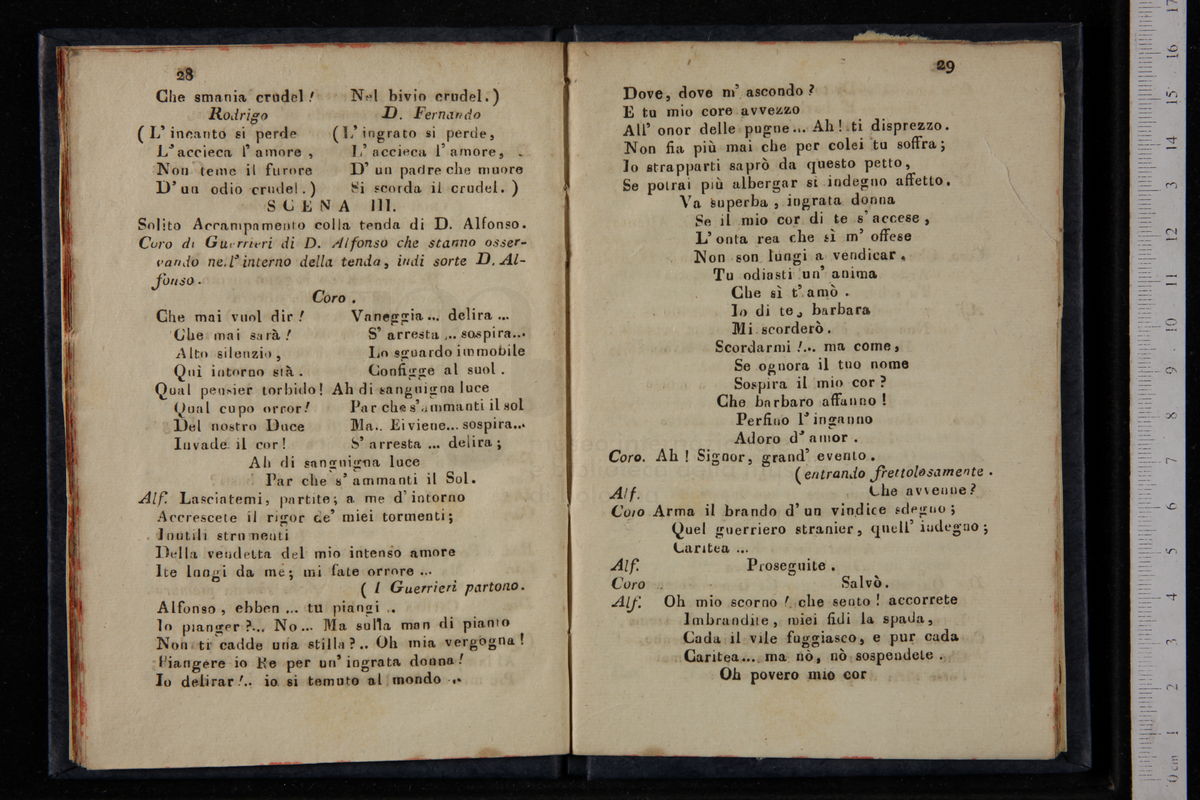 28
Che smania crudel! Nel bivio crudel.)
Rodrigo D. Fernando
(L' incanto si perde (L' ingrato si perde,
L' accieca l' amore, L' accieca l' amore,
Non teme il furore D' un padre che muore
D' un odio crudel.) Si scorda il crudel.)
SCENA III.
Solito Accampamento colla tenda di D. Alfonso.
Coro di Guerrieri di D. Alfonso che stanno osser-
vando nell' interno della tenda, indi sorte D. Al-
fonso.
Coro.
Che mai vuol dir! Vaneggia... delira...
Che mai sarà! S' arresta... sospira...
Alto silenzio, Lo sguardo immobile
Quì intorno stà. Configge al suol.
Qual pensier torbido! Ah di sanguigna luce
Qual cupo orror! Par che s' ammanti il sol
Del nostro Duce Ma.. Ei viene... sospira...
Invade il cor! S' arresta ... delira;
Ah di sanguigna luce
Par che s' ammanti il Sol.
Alf. Lasciatemi, partite; a me d' intorno
Accrescete il rigor de' miei tormenti;
Inutili strumenti
Della vendetta del mio intenso amore
Ite lungi da me; mi fate orrore ...
( I Guerrieri partono.
Alfonso, ebben ... tu piangi ..
Io pianger?... No... Ma sulla man di pianto
Non ti cadde una stilla?.. Oh mia vergogna!
Piangere io Re per un' ingrata donna!
Io delirar!.. io sì temuto al mondo ..
29
Dove, dove m' ascondo?
E tu mio core avvezzo
All' onor delle pugne... Ah! ti disprezzo.
Non fia più mai che per colei tu soffra;
Io strapparti saprò da questo petto,
Se potrai più albergar sì indegno affetto.
Va superba, ingrata donna
Se il mio cor di te s' accese,
L' onta rea che sì m' offese
Non son lungi a vendicar.
Tu odiasti un' anima
Che sì t' amò.
Io di te, barbara
Mi scorderò.
Scordarmi!... ma come,
Se ognora il tuo nome
Sospira il mio cor?
Che barbaro affanno!
Perfino l' inganno
Adoro d' amor.
Coro. Ah! Signor, grand' evento.
(entrando frettolosamente.
Alf. Che avvenne?
Coro Arma il brando d' un vindice sdegno;
Quel guerriero stranier, quell' indegno;
Caritea ...
Alf. Proseguite.
Coro Salvò.
Alf. Oh mio scorno! che sento! accorrete
Imbrandite, miei fidi la spada,
Cada il vile fuggiasco, e pur cada
Caritea... ma nò, nò sospendete.
Oh povero mio cor
0 cm 1 2 3 4 5 6 7 8 9 10 11 12 13 14 15 16 17